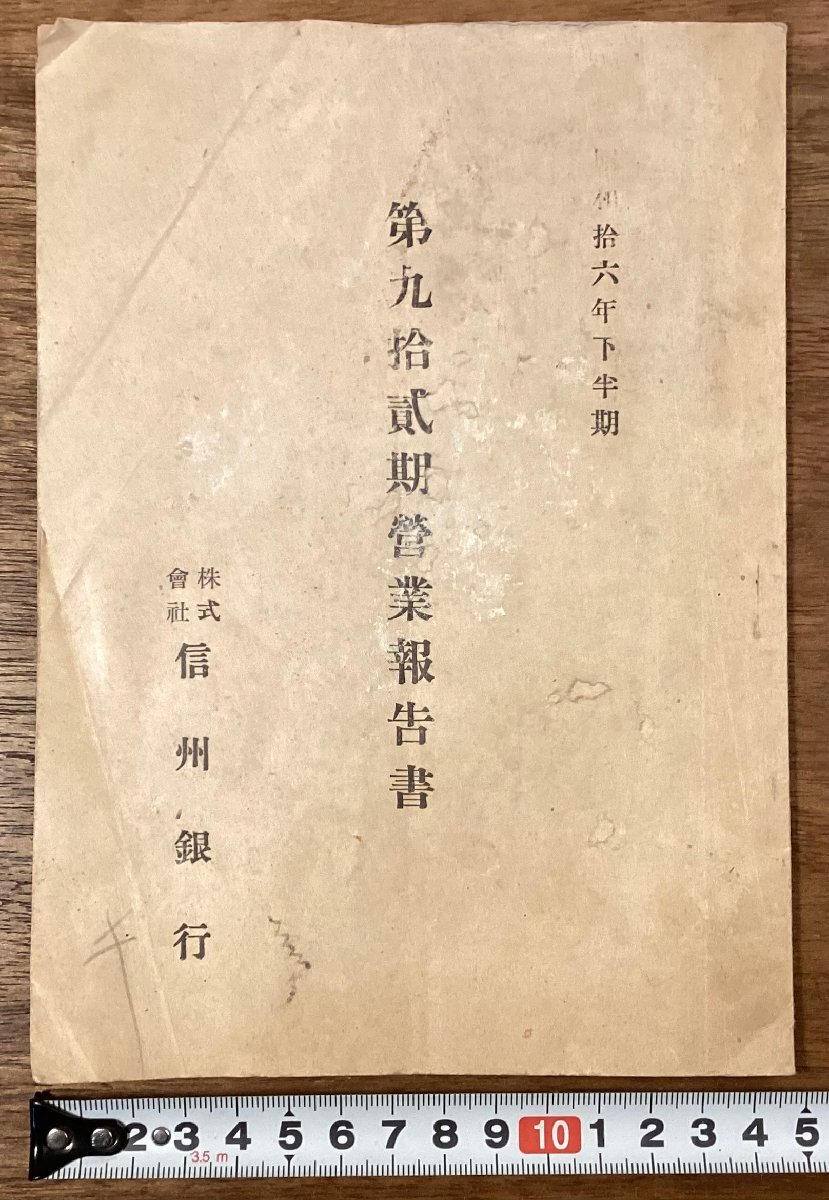 和拾六年下半期
第九拾貳期營業報告書
株式會社
信州銀行
2 3 4 5 6 7 8 9 10 1 2 3 4 5
3.5 m